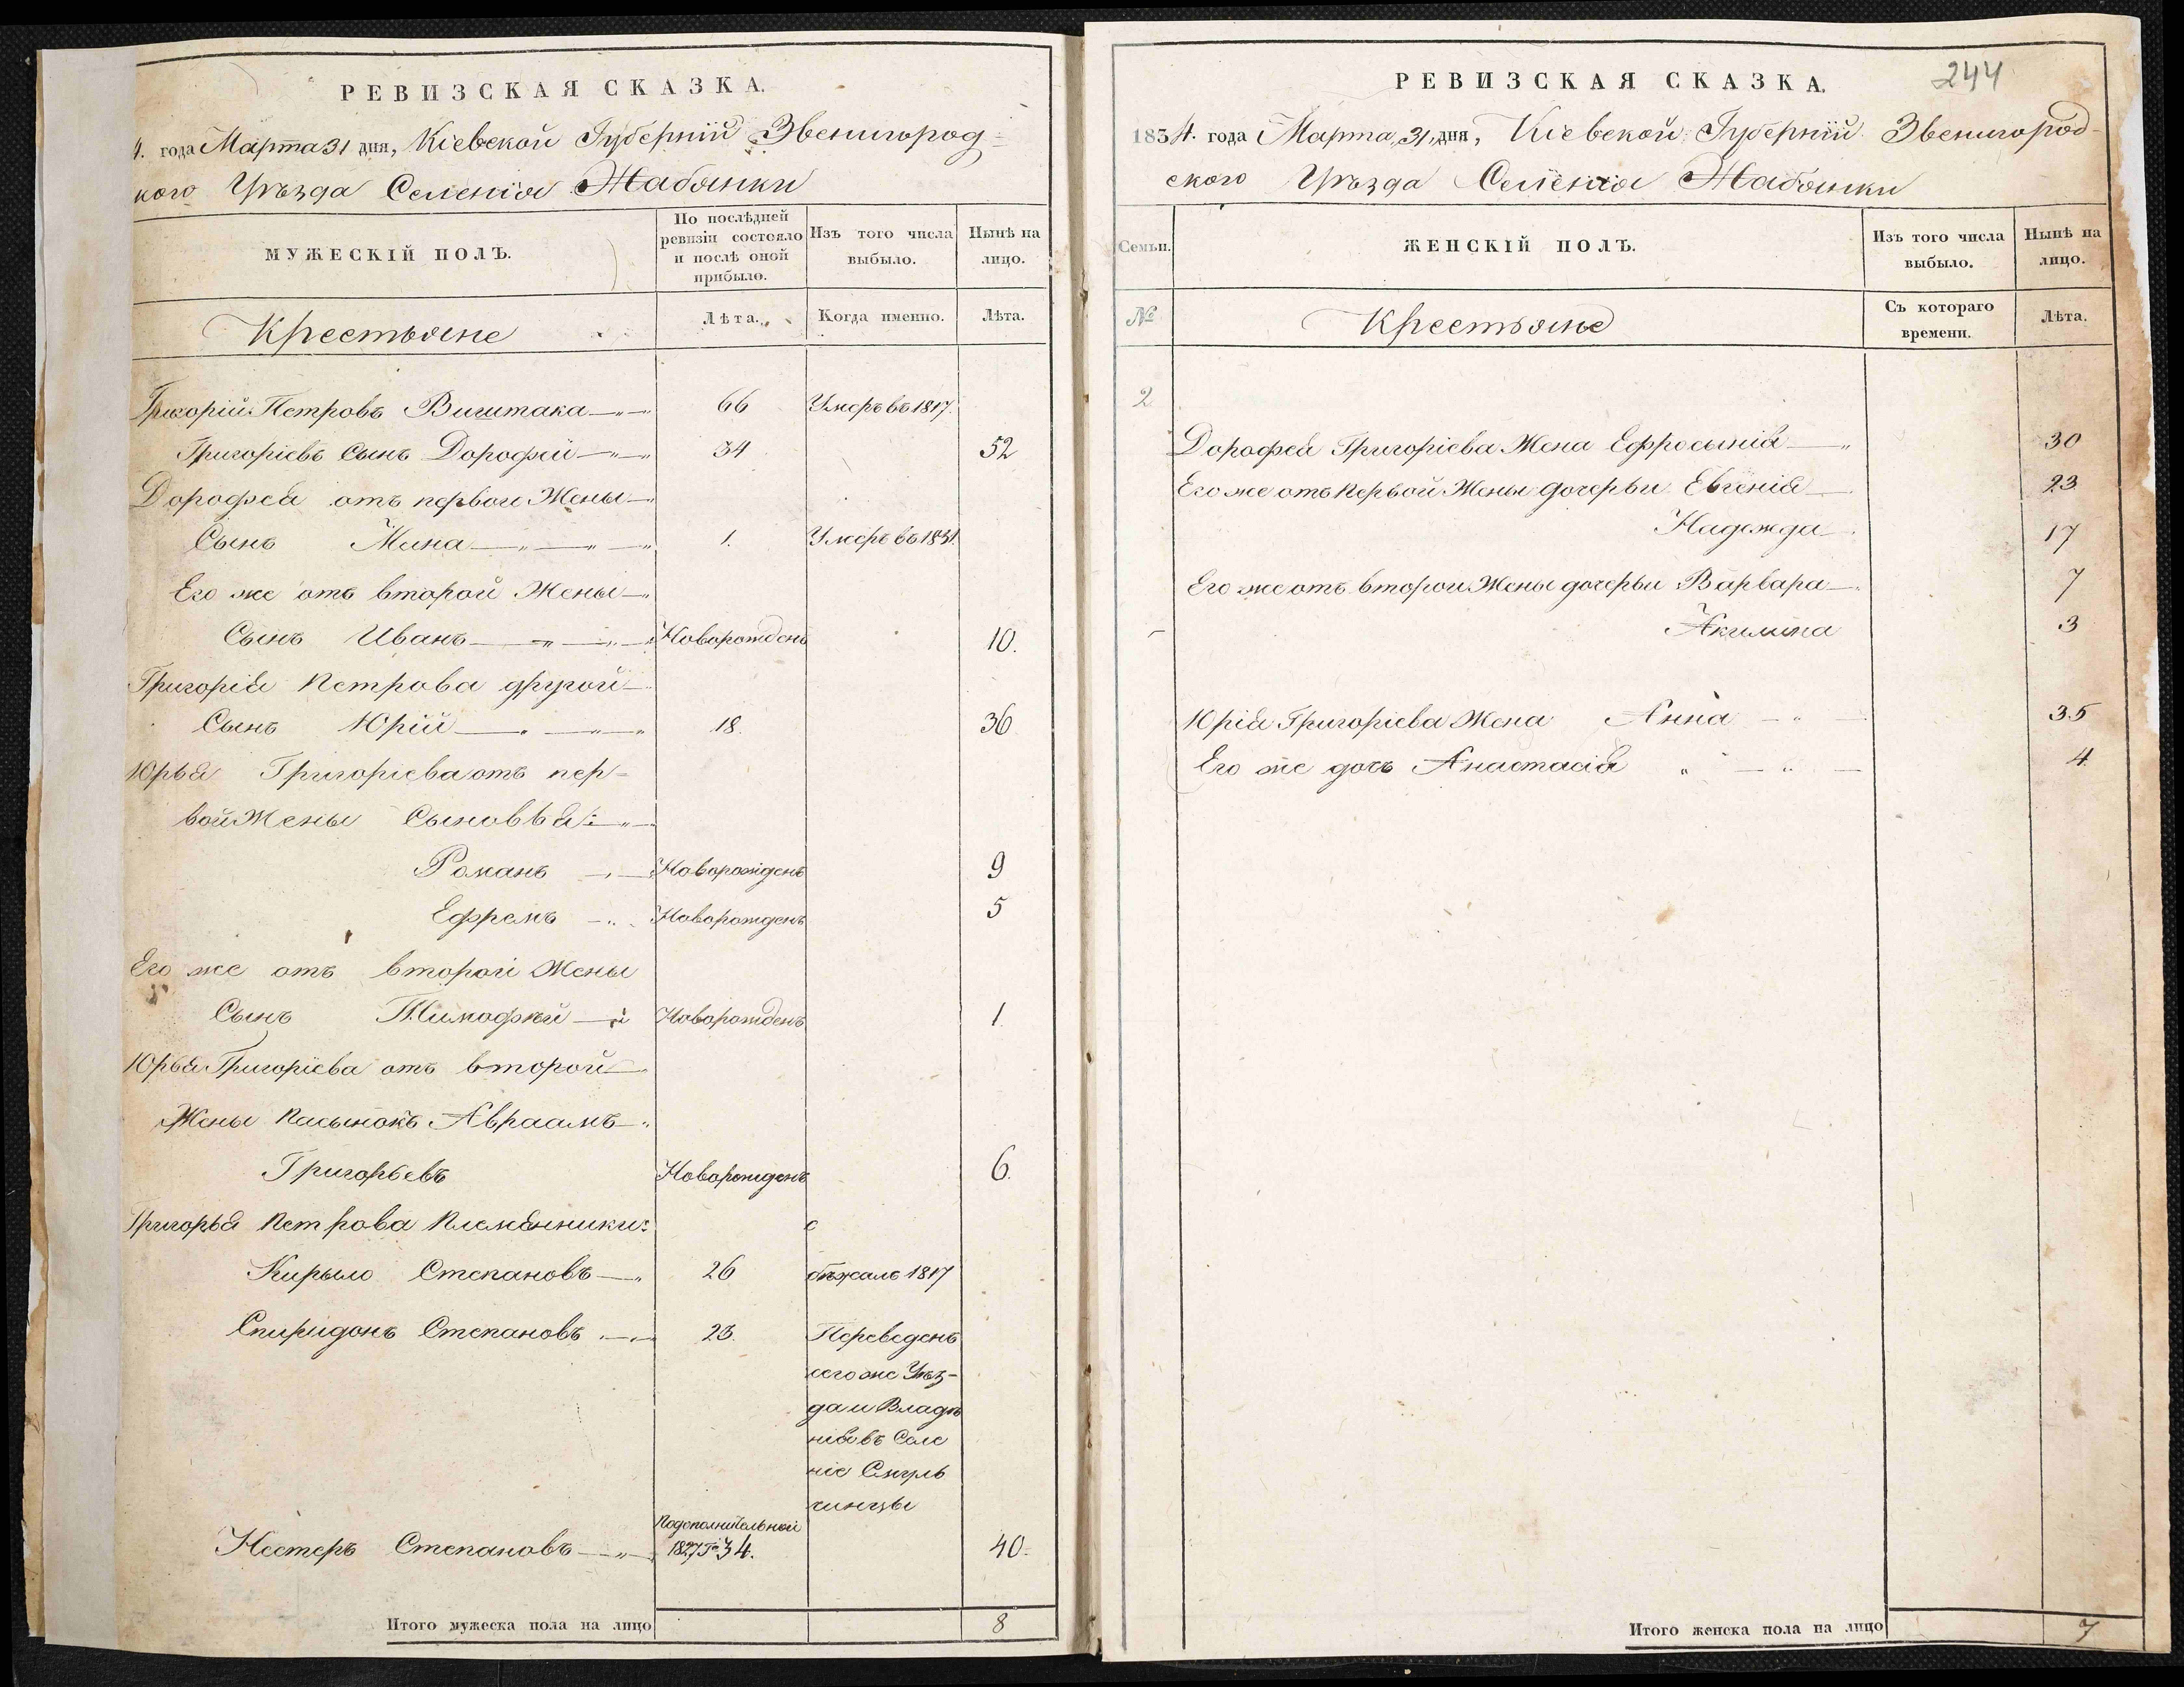 РЕВИЗСКАЯ СКАЗКА.
4. года Марта 31 дня, Кіевской Губерніи Звенигород=
кого Уѣзда Селенія Жабянки
МУЖЕСКІЙ ПОЛЪ.
По послѣдней ревизіи состояло и послѣ оной прибыло.
Изъ того числа выбыло.
Нынѣ на лицо.
Крестьяне
Лѣта.
Когда именно.
Лѣта.
Григорій Петровъ 66 Умеръ въ 1817.
Григоріевъ Сынъ Дорофей 34 52
Дорофея отъ первои Жены
Сынъ Мина 1. Умеръ въ 1831.
Его же отъ второй Жены
Сынъ Иванъ Новорожденъ 10.
Григорія Петрова другой
Сынъ Юрій 18. 36
Юрья Григоріева отъ пер=
вой Жены Сыновья:
Романъ Новорожденъ 9
Ефремъ Новорожденъ 5
Его же отъ второй Жены
Сынъ Тимофѣй Новорожденъ 1
Юрья Григоріева отъ второй
Жены Пасынокъ Авраамъ
Григорьевъ Новорожденъ 6.
Григорья Петрова Племянники:
Кирыло Степановъ 26 бѣжалъ 1817
Спиридонъ Степановъ 23. Переведенъ
сего же Уѣз-
да и Владѣ
нія въ Селе
ніе Смуль
чинцы
Нестеръ Степановъ По дополнительной 1827 Го 34. 40.
Итого мужеска пола на лицо 8
РЕВИЗСКАЯ СКАЗКА.
244
1834. года Марта 31 дня, Кіевской Губерніи Звенигород-
ского Уѣзда Селенія Жабянки
Семьи.
ЖЕНСКІЙ ПОЛЪ.
Изъ того числа выбыло.
Нынѣ на лицо.
№
Крестьяне
Съ котораго времени.
Лѣта.
2
Дорофея Григоріева Жена Ефросынія 30
Его же отъ Первой Жены дочерьи Евгенія 23
Надежда 17
Его же отъ второи Жены дочерьи Варвара 7
Акилина 3
Юрія Григоріева Жена Анна 35
Его же дочь Анастасія 4.
Итого женска пола на лицо 7